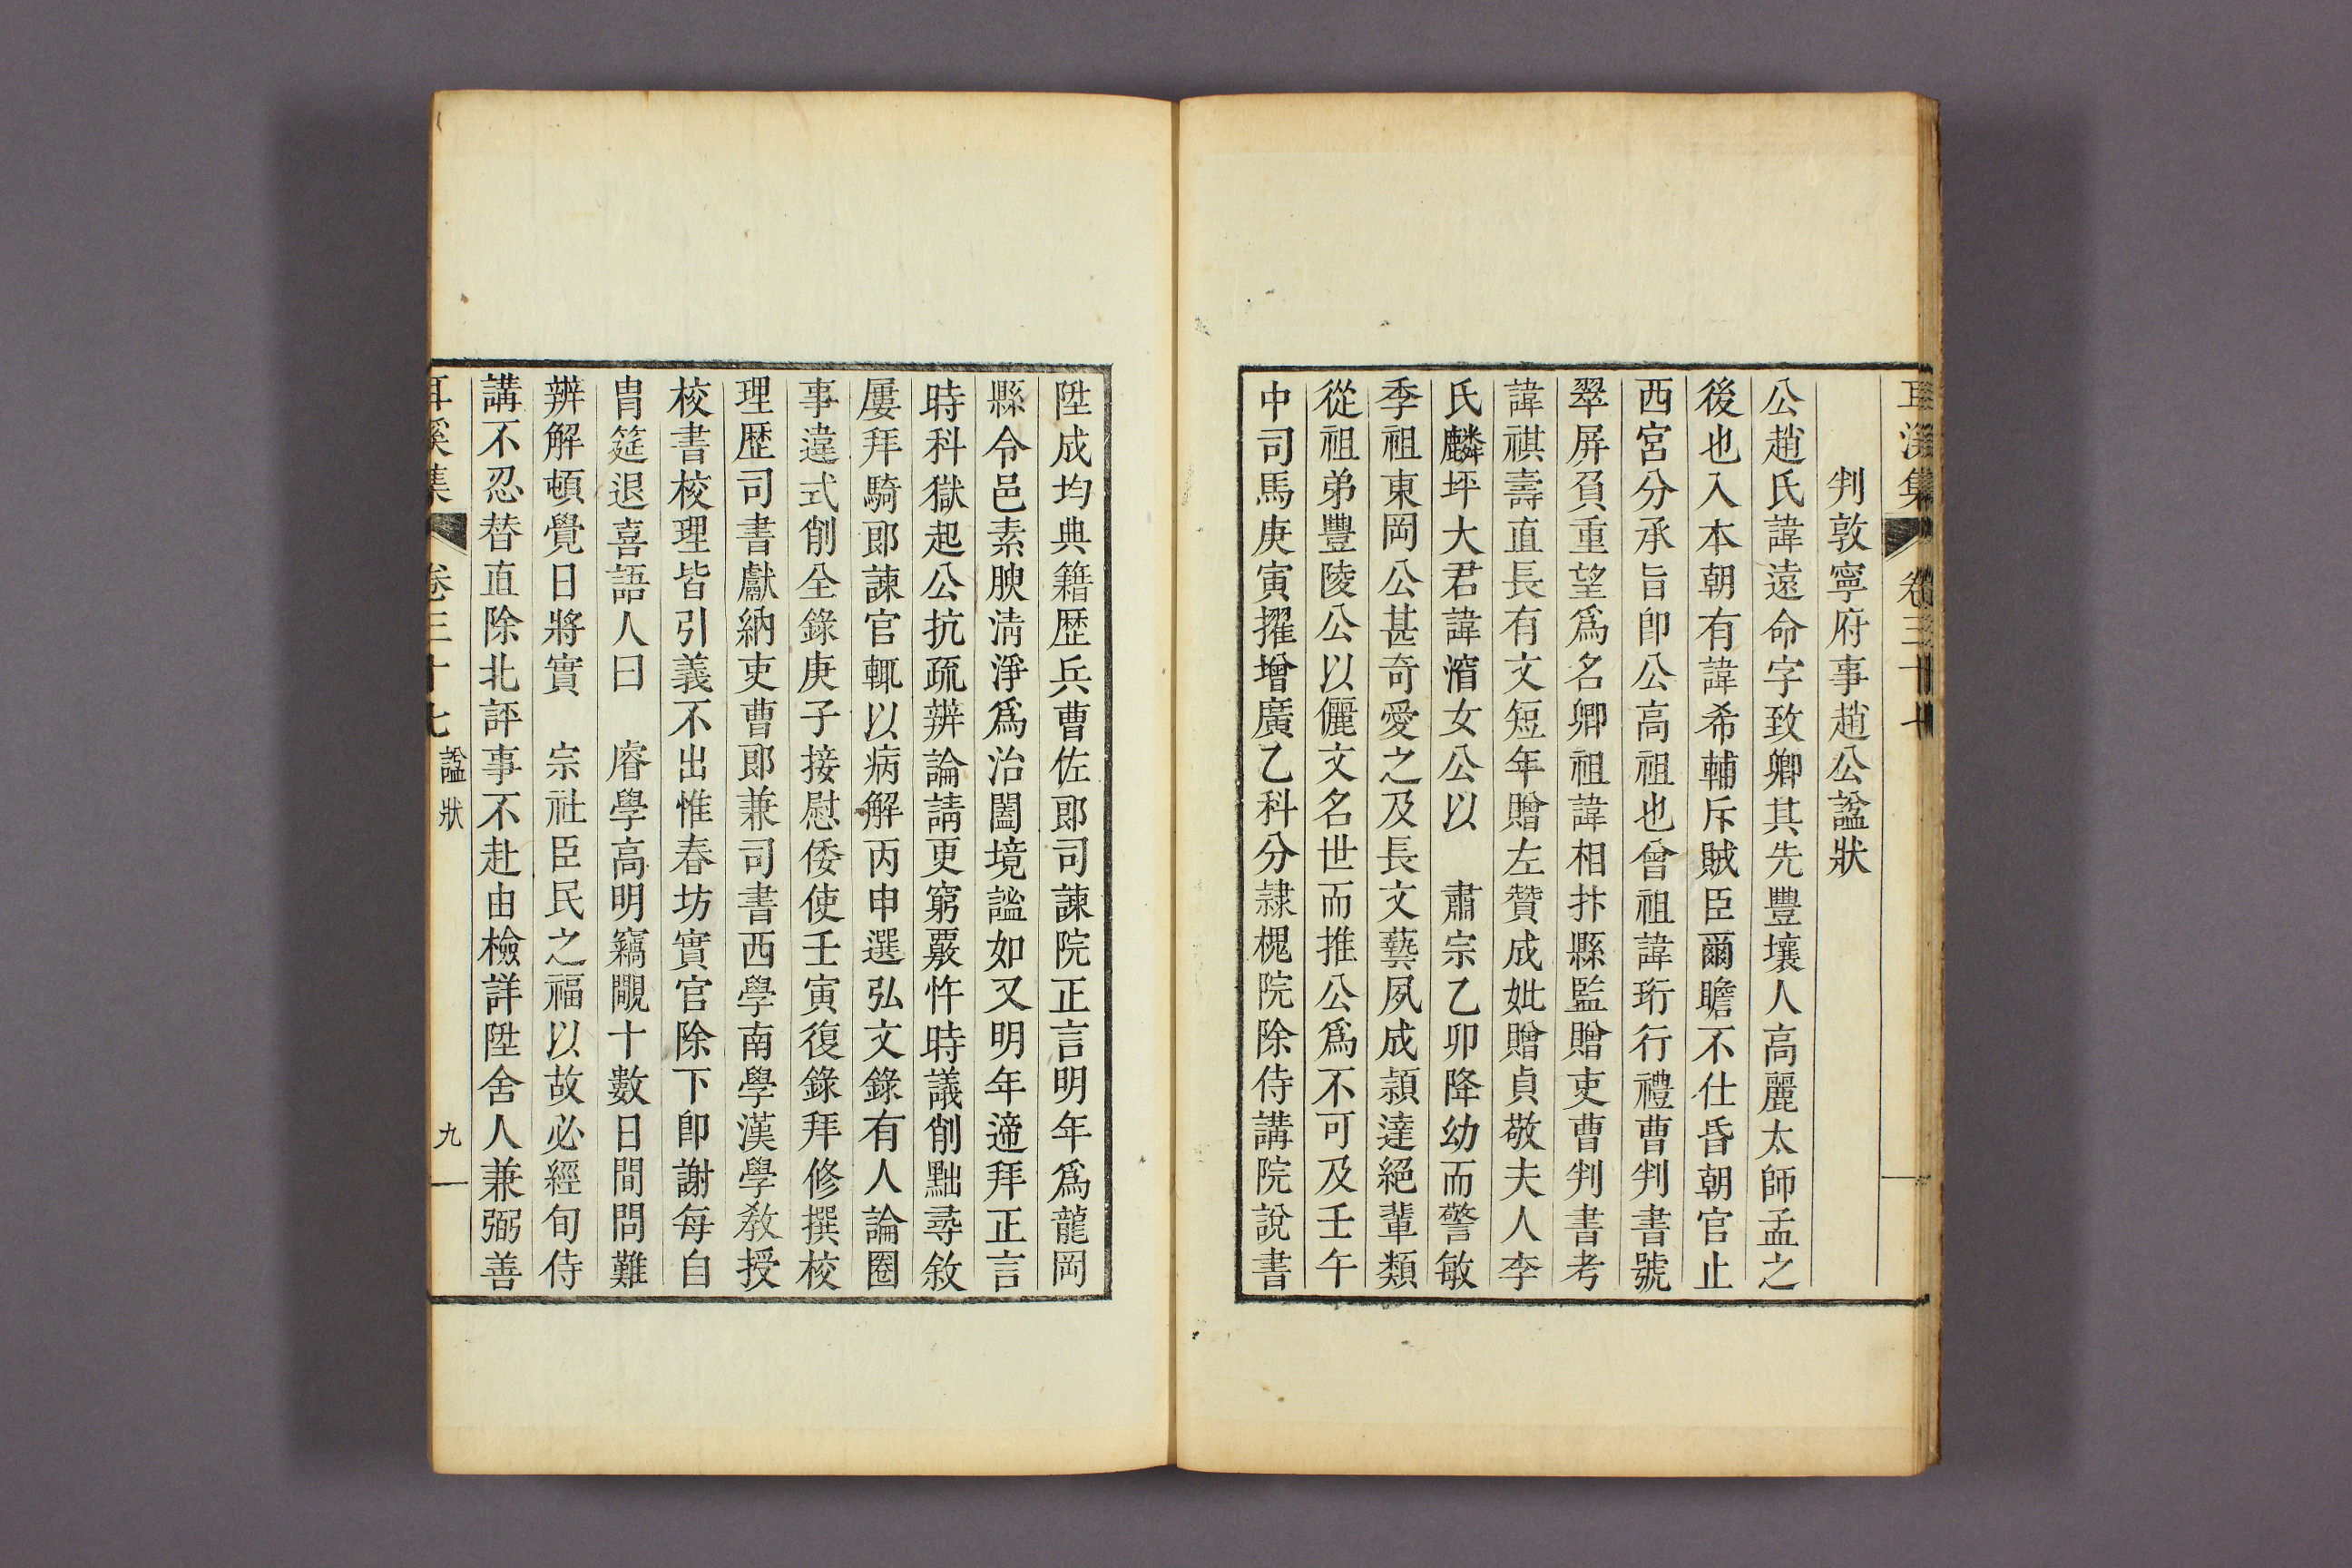 耳溪集 卷三十七
判敦寧府事趙公諡狀
公趙氏諱遠命字致卿其先豐壤人高麗太師孟之
後也入本朝有諱希輔斥賊臣爾瞻不仕昏朝官止
西宮分承旨卽公高祖也曾祖諱珩行禮曹判書號
翠屏負重望爲名卿祖諱相抃縣監贈吏曹判書考
諱祺壽直長有文短年贈左贊成妣贈貞敬夫人李
氏麟坪大君諱㴭女公以 肅宗乙卯降幼而警敏
季祖東岡公甚奇愛之及長文藝夙成潁達絕輩類
從祖弟豐陵公以儷文名世而推公爲不可及壬午
中司馬庚寅擢增廣乙科分隷槐院除侍講院說書
陞成均典籍歷兵曹佐郞司諫院正言明年爲龍岡
縣令邑素腴淸淨爲治闔境謐如又明年遞拜正言
時科獄起公抗疏辨論請更窮覈忤時議削黜尋敘
屢拜騎郞諫官輒以病解丙申選弘文錄有人論圈
事違式削全錄庚子接慰倭使壬寅復錄拜修撰校
理歷司書獻納吏曹郞兼司書西學南學漢學敎授
校書校理皆引義不出惟春坊實官除下卽謝每自
冑筵退喜語人曰 睿學高明竊覵十數日間問難
辨解頓覺日將實 宗社臣民之福以故必經旬侍
講不忍替直除北評事不赴由檢詳陞舍人兼弼善
耳溪集 卷三十七 諡狀 九